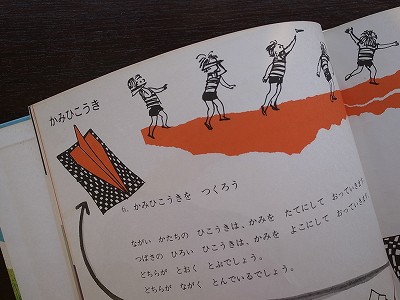 かみひこうき
6. かみひこうきを つくろう
ながい かたちの ひこうきは、かみを たてにして おっていきます。
つばさの ひろい ひこうきは、かみを よこにして おっていきます。
どちらが とおく とぶでしょう。
どちらが ながく とんでいるでしょう。